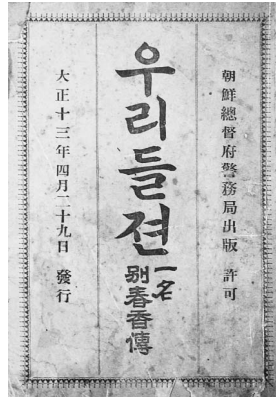 朝鮮總督府警務局出版 許可
우리들젼
一名
別春香傳
大正十三年四月二十九日 發行